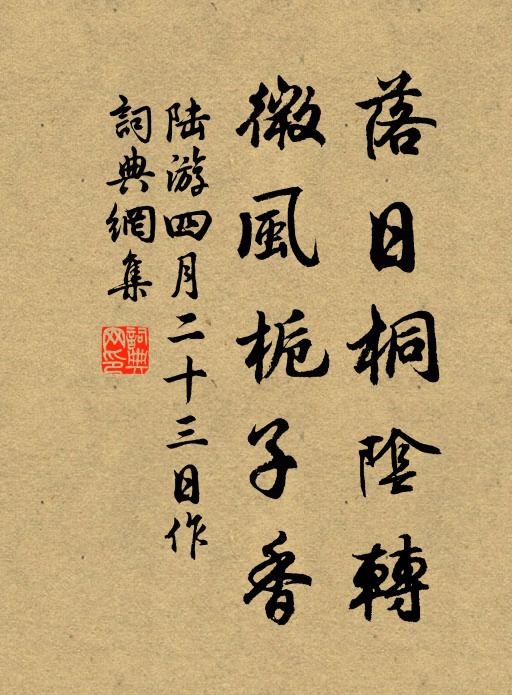 落日桐陰轉
微風栀子香
陆游四月二十三日作
詞典網集
詞典网印